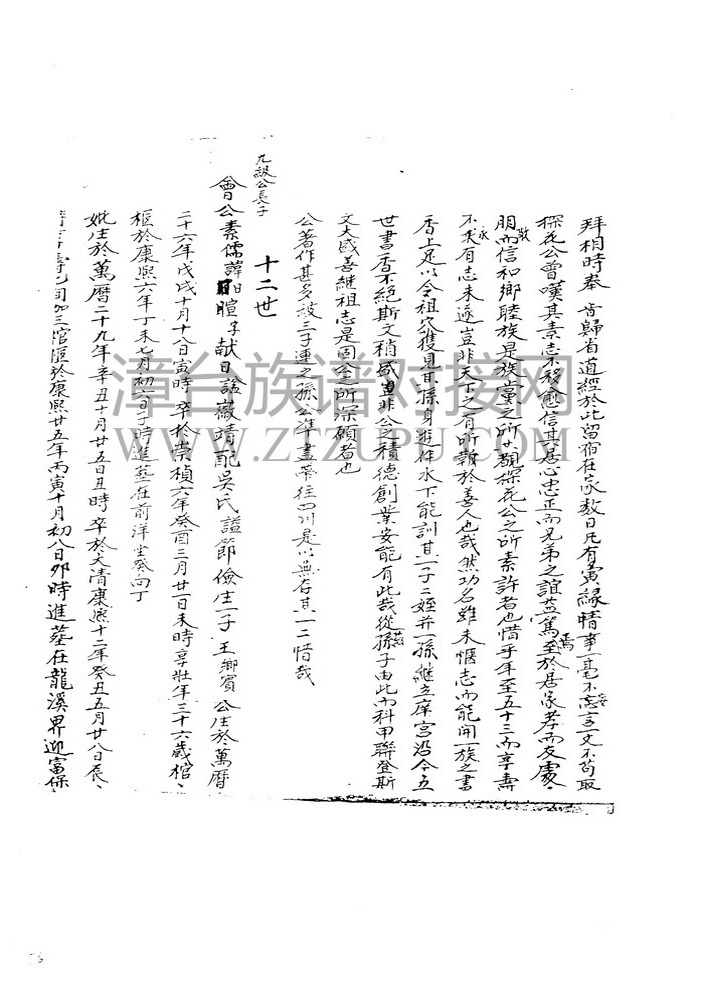 拜相時奉 旨歸省道經於此留宿在家数日凡有寅緣情事一毫不忘言一文不苟取
妄
探花公曾嘆其素志不移愈信其居心忠正而兄弟之誼益篤至於居家孝而友處
焉
朋而信和鄉睦族是族黨之所
敬
探花公之所素許者也惜乎年至五十三而享壽
不求有志未遂豈非天下之有所
永
於善人也哉然功名雖未愜志而能開一族之書
香上足以令祖穴獲見其孫身遊泮水下能訓其一子二姪并一孫繼立庠宮迨今五
世書香不絕斯文稍盛豈非公之積德創業安能有此哉從
孫子由此而科甲聯登斯
文大盛善繼祖志是固公之所深願者也
公著作甚多被三子連之孫公準盡帶往四川是以無存其一二惜哉
十二世
九級公長子
曾公素儒諱
暄字献日諡嶽靖配吳氏諡節儉生一子 王鄉賓 公生於萬曆
二十六年戊戌十月十八日寅時 卒於崇禎六年癸酉三月廿一日未時享壯年三十六歲棺
柩於康熙六年丁未七月初一日子時進葬在前洋坐癸向丁
妣生於萬曆二十九年辛丑十月廿五日丑時 卒於大清康熙十二年癸丑五月廿八日辰
棺柩於康熙廿五年丙寅十月初八日卯時進葬在龍溪界迎富保
漳台族谱对接网
WWW.ZTZUPU.COM